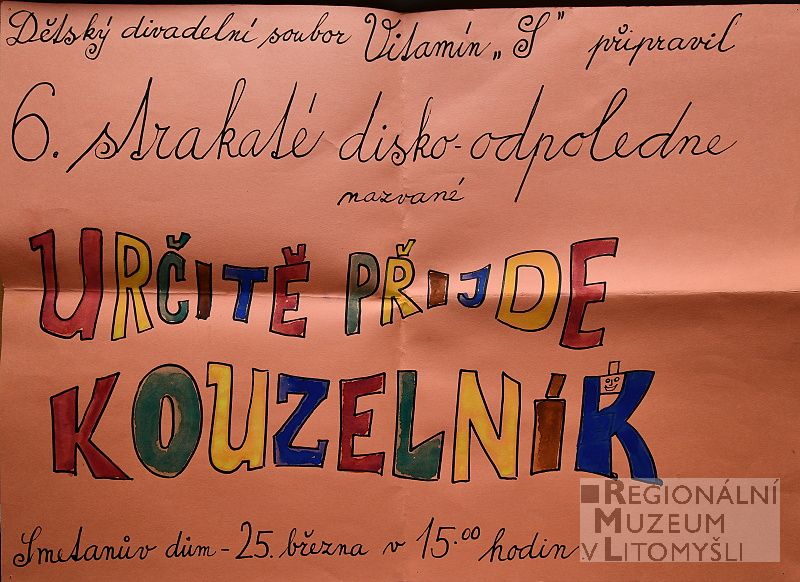 Dětský divadelní soubor Vitamín „S" připravil
6. strakaté disko-odpoledne
nazvané
URČITĚ PŘIJDE
KOUZELNÍK
Smetanův dům - 25. března v 15.00 hodin
REGIONÁLNÍ
MUZEUM
V LITOMYŠLI